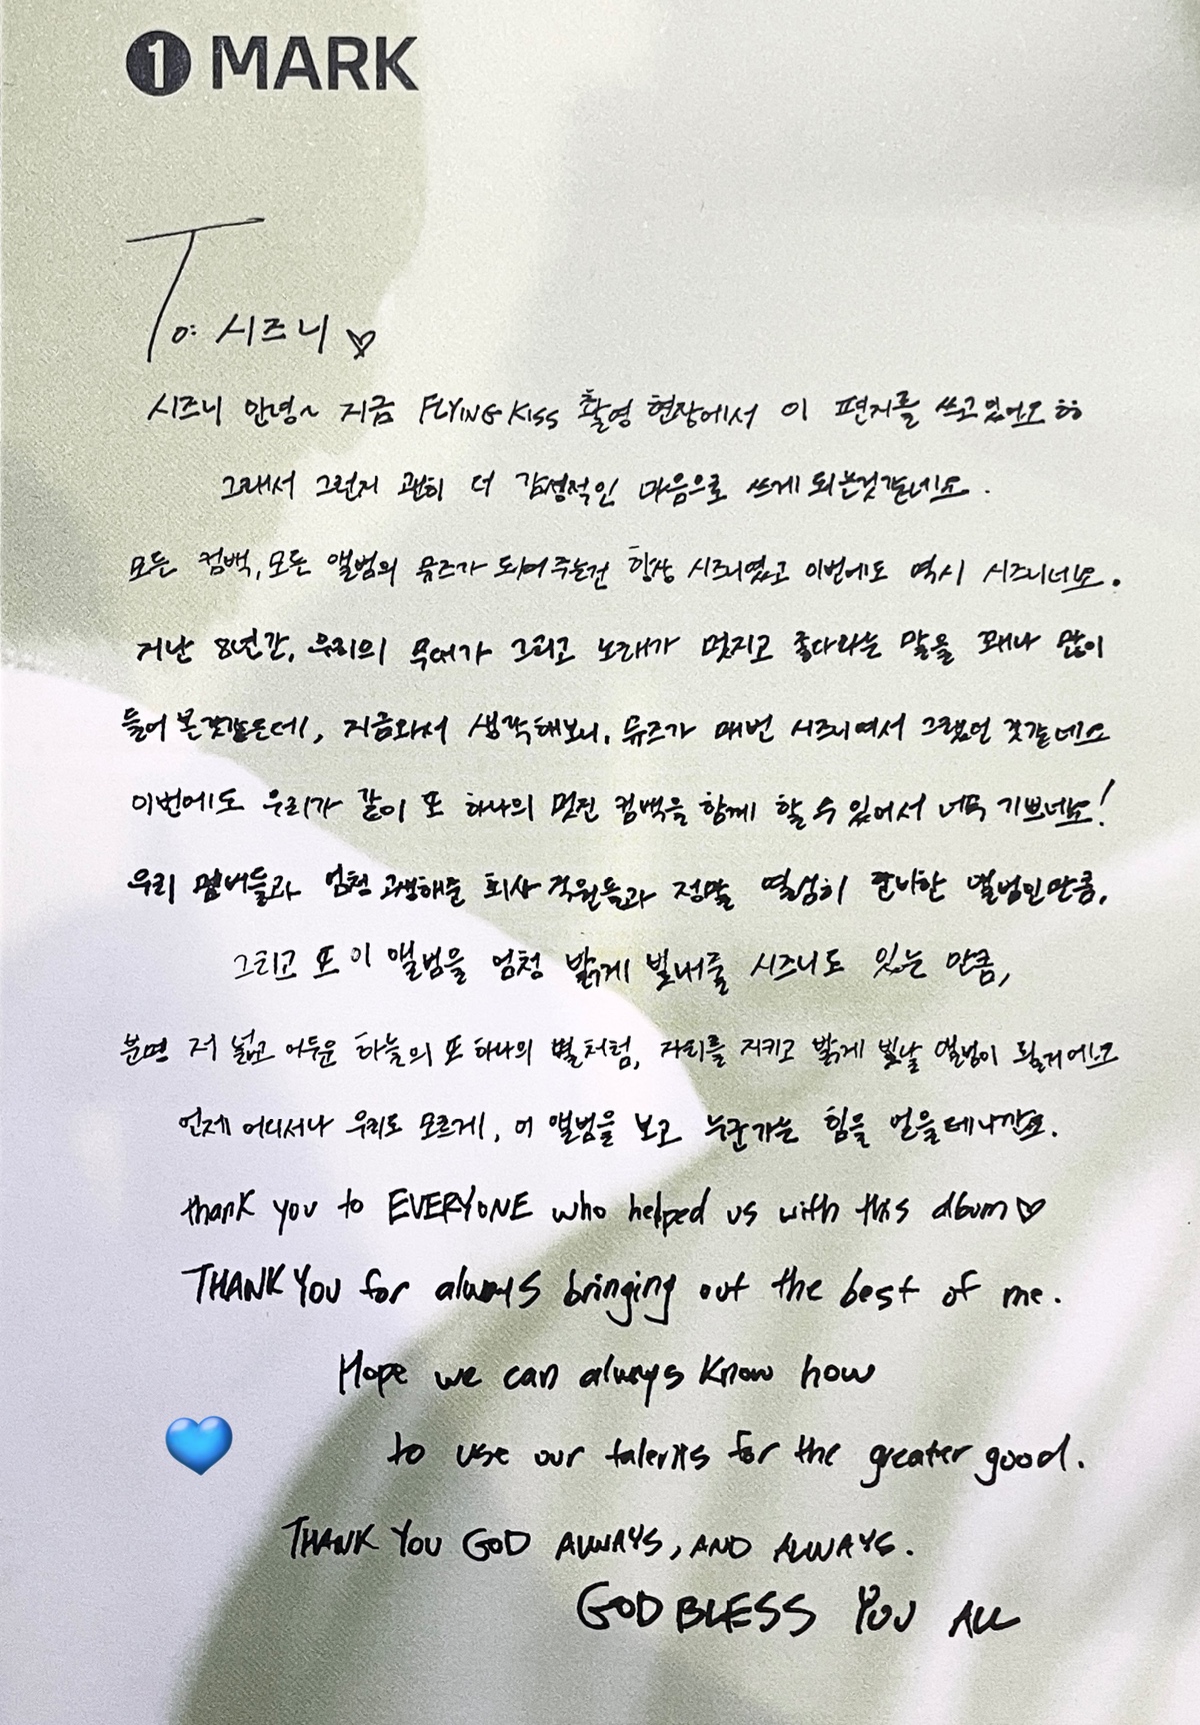 1 MARK
To: 시즈니 ♡
시즈니 안녕~ 지금 FLYING KISS 촬영 현장에서 이 편지를 쓰고있어요 ㅎㅎ
그래서 그런지 괜히 더 감성적인 마음으로 쓰게 되는것같네요.
모든 컴백, 모든 앨범의 뮤즈가 되어주는건 항상 시즈니였고 이번에도 역시 시즈니네요.
지난 8년간, 우리의 무대가 그리고 노래가 멋지고 좋다라는 말을 꽤나 많이
들어 본것같은데, 지금와서 생각해보니, 뮤즈가 매번 시즈니여서 그랬던 것같네요
이번에도 우리가 같이 또 하나의 멋진 컴백을 함께 할 수 있어서 너무 기쁘네요!
우리 멤버들과 엄청 고생해준 회사 직원들과 정말 열심히 준비한 앨범인만큼,
그리고 또 이 앨범을 엄청 밝게 빛내줄 시즈니도 있는 만큼,
분명 저 넓고 어두운 하늘의 또 하나의 별처럼, 자리를 지키고 밝게 빛날 앨범이 될거에요
언제 어디서나 우리도 모르게, 이 앨범을 보고 누군가는 힘을 얻을테니깐요.
thank you to EVERYONE who helped us with this album ♡
THANK YOU for always bringing out the best of me.
Hope we can always know how
to use our talents for the greater good.
THANK YOU GOD ALWAYS, AND ALWAYS.
GOD BLESS YOU ALL